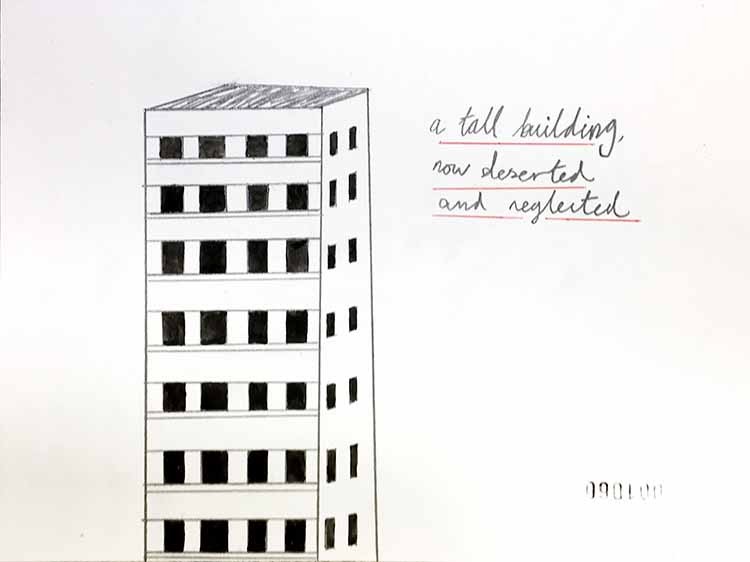 a tall building,
now deserted
and neglected